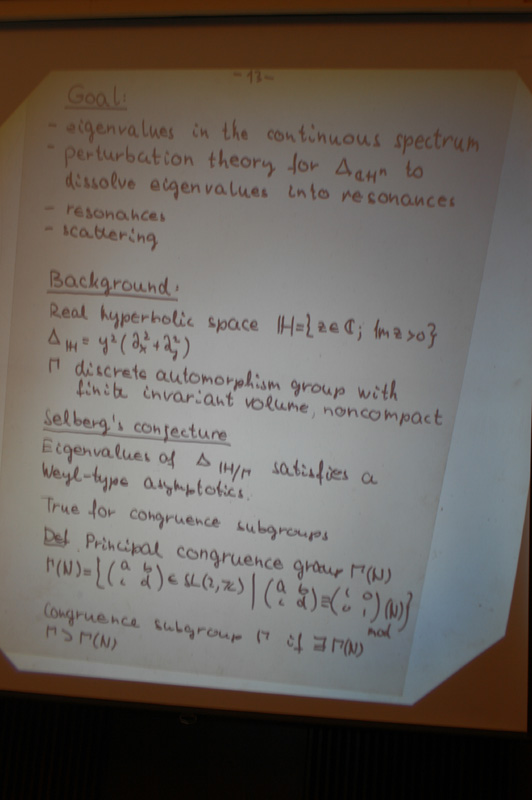 -13-
Goal:
- eigenvalues in the continuous spectrum
- perturbation theory for Δ_{ℂHⁿ} to
dissolve eigenvalues into resonances
- resonances
- scattering
Background:
Real hyperbolic space ℍ={z∈ℂ; Im z>0}
Δ_ℍ = y²(∂ₓ²+∂ᵧ²)
Γ discrete automorphism group with
finite invariant volume, noncompact
Selberg's conjecture
Eigenvalues of Δ_{ℍ/Γ} satisfies a
Weyl-type asymptotics.
True for congruence subgroups
Def Principal congruence group Γ(N)
Γ(N)={(a b c d)∈SL(2,ℤ) | (a b c d)≡(1 0 0 1) mod (N)}
Congruence subgroup Γ if ∃Γ(N)
Γ⊃Γ(N)